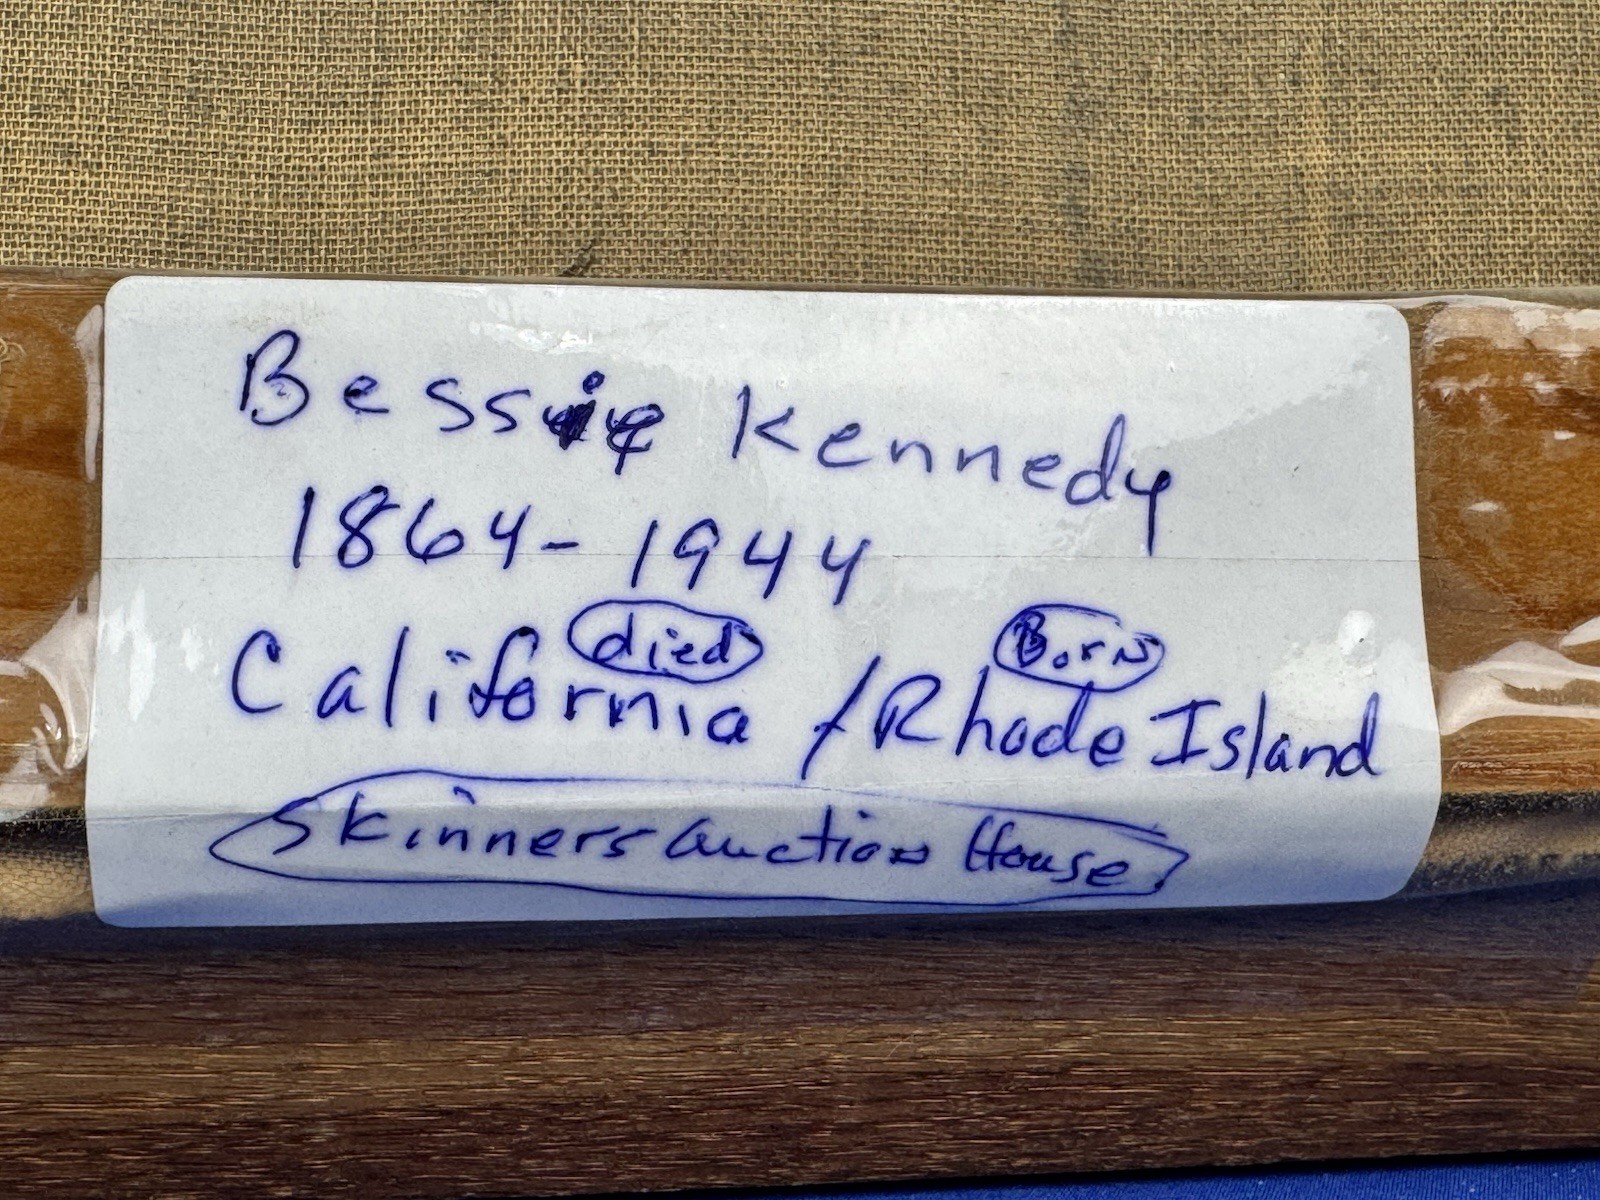 Bessie Kennedy
1864-1944
died Born
California / Rhode Island
Skinners Auction House